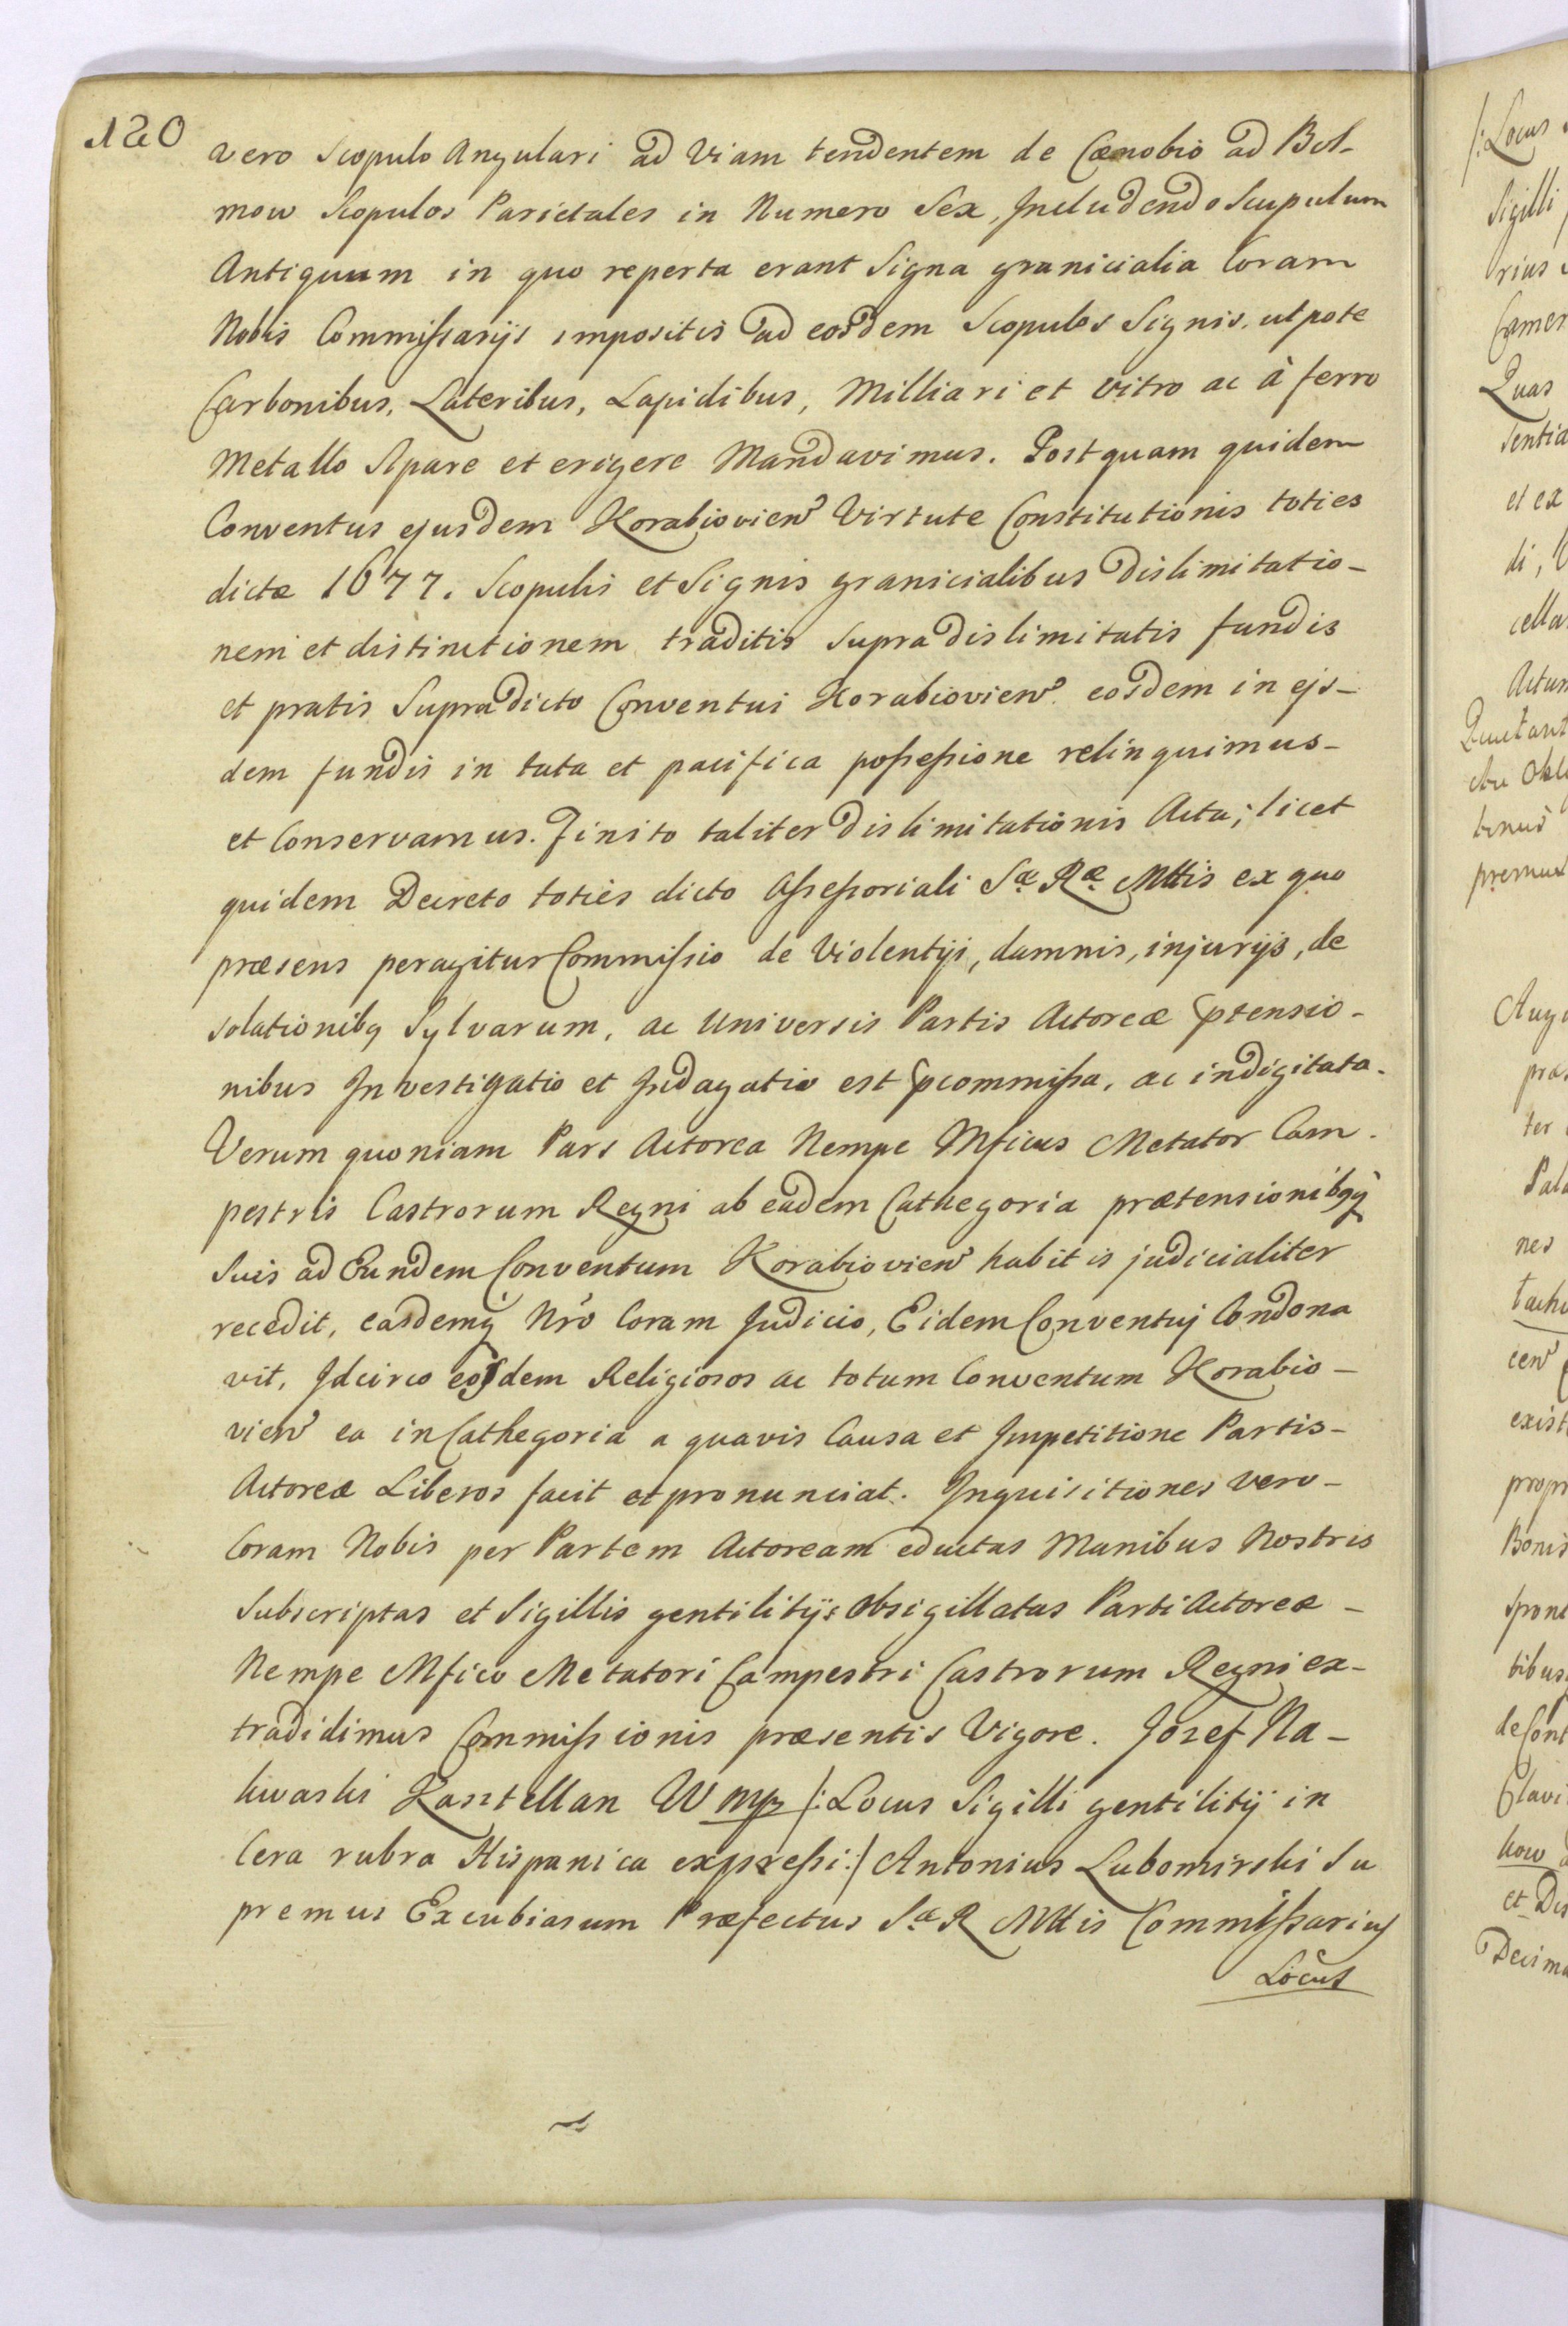 120
vero Scopulo Angulari ad Viam tendentem de Cænobio ad Bol-
mow Scopulos Parietales in Numero Sex, Includendo Scupulum
Antiquum in quo reperta erant Signa granicialia Coram
Nobis Commissarijs impositis ad eosdem Scopulos Signis, utpote
Carbonibus, Lateribus, Lapidibus, Milliari et vitro ac à ferro
Metallo Sipare et erigere Mandavimus. Postquam quidem
Conventus ejusdem Korabiovien Virtute Constitutionis toties
dictæ 1677. Scopulis et Signis granicialibus Dislimitatio-
nem et distinctionem traditis Supra dislimitatis fundis
et pratis Supradicto Conventui Korabiovien eosdem in ejs-
dem fundis in tuta et pacifica possessione relinquimus-
et Conservamus. Finito taliter Dislimitationis Acta; licet
quidem Decreto toties dicto Assessoriali Sæ Ræ Mttis ex quo
præsens peragitur Commissio de Violentijs, damnis, injurijs, de
solationibq Sylvarum, ac Universis Partis Actoreæ ptensio-
nibus Investigatio et Indagatio est pcommissa, ac indigitata.
Verum quoniam Pars Actorea Nempe Mficus Metator Cam-
pestris Castrorum Regni ab eadem Cathegoria prætensionibqq
Suis ad Eundem Conventum Korabiovien habitis judicialiter
recedit, easdemq Nrô Coram Judicio, Eidem Conventuj Condona
vit, Idcirco eosdem Religiosos ac totum Conventum Korabio-
vien ea in Cathegoria a quavis Causa et Impetitione Partis-
Actoreæ Liberos facit et pronunciat. Inquisitiones vero-
Coram Nobis per Partem Actoream eductas Manibus Nostris
Subscriptas et Sigillis gentilitijs Obsigillatas Parti Actoreæ-
Nempe Mfico Metatori Campestri Castrorum Regni ex-
tradidimus Commissionis præsentis Vigore. Jozef Na-
kwaski Kasztellan W mp /: Locus Sigilli gentilitij in
Cera rubra Hispanica expressi:/ Antonius Lubomirski Su
premus Excubiarum Præfectus Sæ R Mttis Commissarius
Locus
/: Locus
Sigilli
rius
Camer
Quas
sentia
et ex
di,
cella
Actum
premus
præ
ter
Pala
nes
cen
exist
propr
Bonis
spont
tibus
de Cont
Clavi
kow
et Dis
Decima